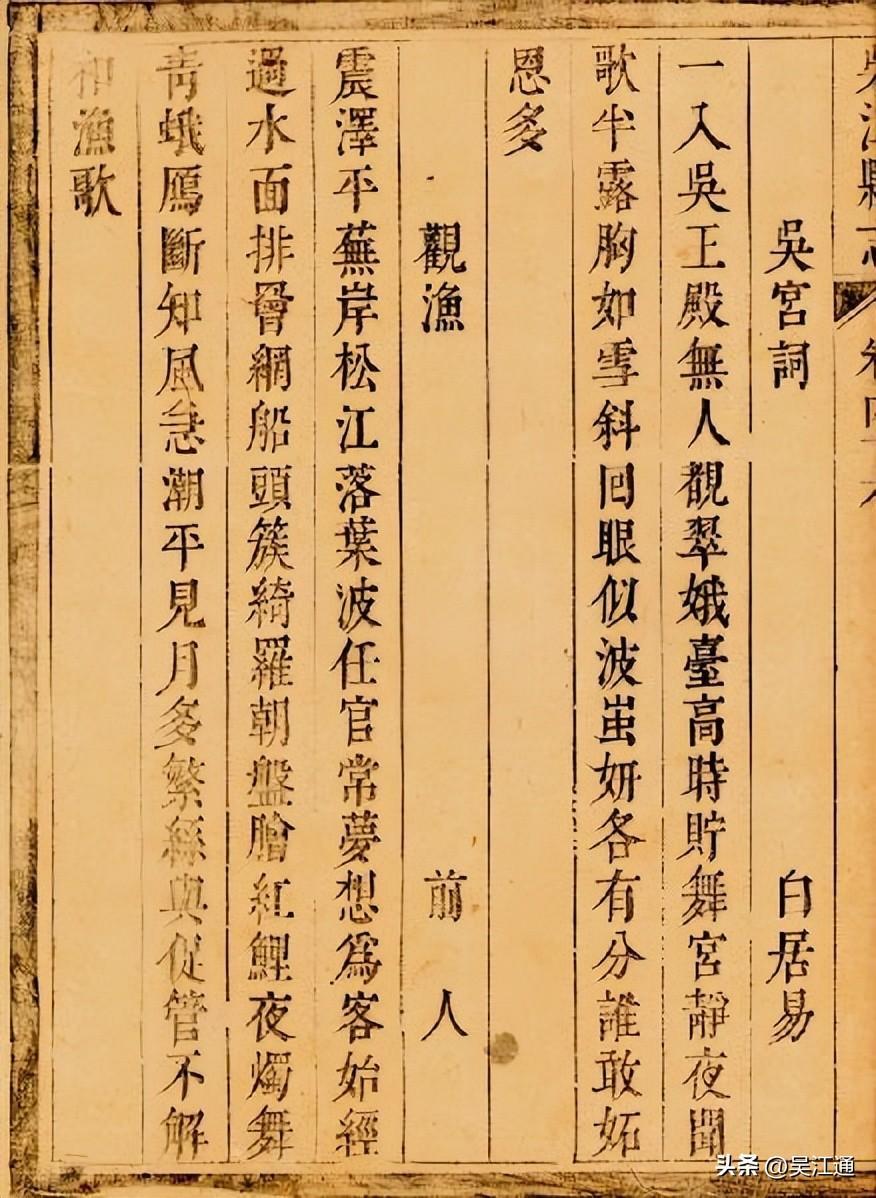 吳江縣志 卷四十
吳宮詞 白居易
一入吳王殿無人覩翠娥臺高時貯舞宮靜夜聞
歌半露胸如雪斜回眼似波蚩妍各有分誰敢妬
恩多
觀漁 前人
震澤平蕪岸松江落葉波任官常夢想爲客始經
過水面排罾網船頭簇綺羅朝盤膾紅鯉夜燭舞
靑蛾鴈斷知風急潮平見月多繁絲與促管不解
和漁歌
头条 @吴江通